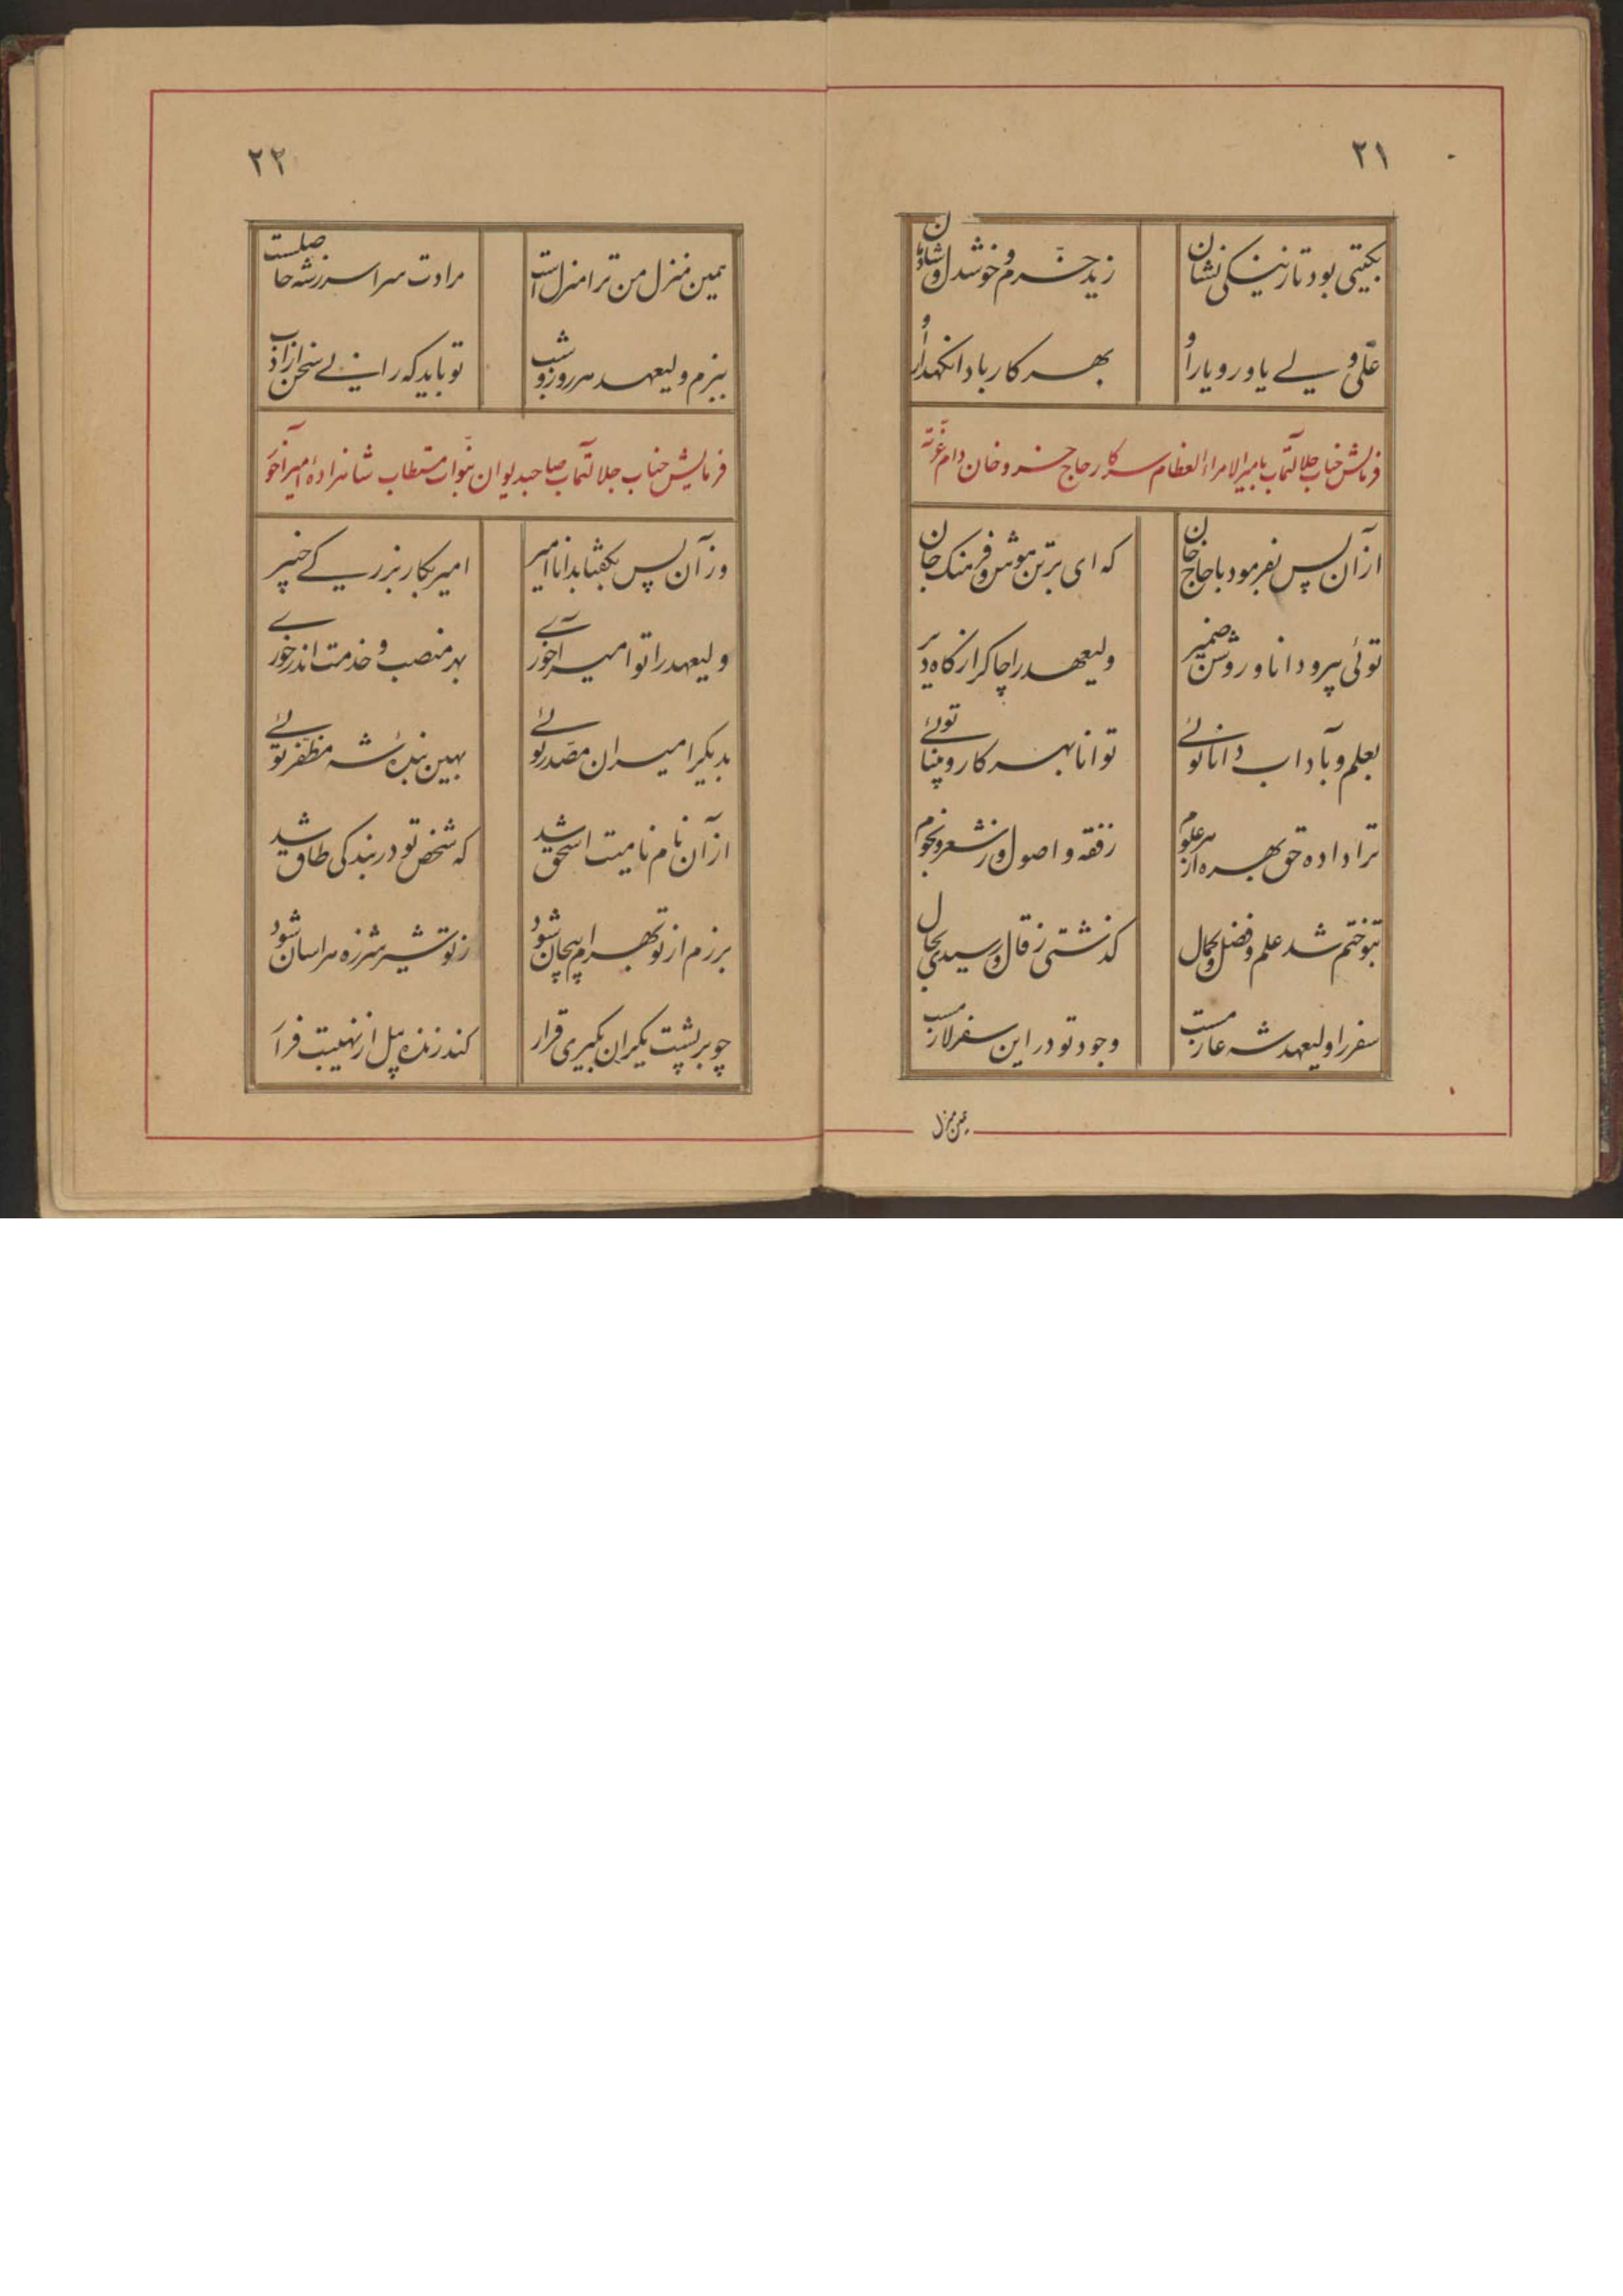 ۲۱
بکیتی بود تا ز نیکی نشان
زید خرّم و خوشدل و شادمان
علّی ولے یاور و یار او
بهر کار بادا نکهدار او
فرمایش جناب جلالتمآب بامیرالامراء العظام سرکار حاج خسرو خان دام عزّته
ازآن پس بفرمود با حاج خان
که ای برتن هوش و فرهنک جان
توئی پیر و دانا و روشن ضمیر
ولیعهد را چاکر از کاه دیر
بعلم و بآداب دانا توئے
توانا بهر کار و بینا توئے
ترا داده حق بهره از هر علوم
ز فقه و اصول و ز شعر و نجوم
بتو ختم شد علم و فضل و کمال
کذشتی ز قال و رسیدی بحال
سفر را ولیعهد شه عازمست
وجود تو در این سفر لازمست
همین منزل
۲۲
همین منزل من ترا منزل است
مرادت سراسر ز شه حاصلست
ببزم ولیعهد هر روز و شب
تو باید که رانے سخن از ادب
فرمایش جناب جلالتمآب صاحبدیوان بنوّاب مستطاب شاهزادهٔ امیرآخور
وزآن پس بکفتا بدانا امیر
امیر بکار بزرکے خبیر
ولیعهد را تو امیرآخورے
بهر منصب و خدمت اندر خورے
بدیکر امیران مصّدر توئے
بهین بندهٔ شه مظّفر توئے
ازآن نام نامیت اسحق شد
که شخص تو در بندکی طاق شد
برزم از تو بهرام پیچان شود
ز تو شیر شرزه هراسان شود
چو بر پشت یکران بکیری قرار
کند زنده پیل از نهیبت فرار